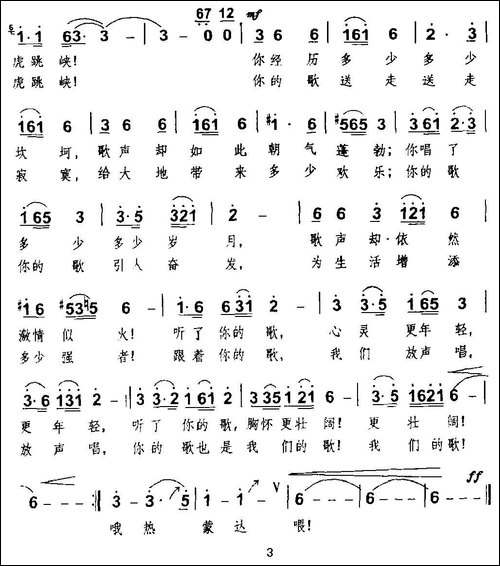 67 12 mf
1·1 63·3 | 3 - 0 0 | 3 6 6 | 161 6 | 2 · 3 |
虎跳峡! 你经历多少多少
虎跳峡! 你的歌送走送走
161 6 | 3 6 6 | 161 6 | #1 · 6 | #565 3 | 3 61 2·3 |
坎坷,歌声却如此朝气蓬勃;你唱了
寂寞,给大地带来多少欢乐;你的歌
1 65 3 | 3·5 321 | 2 - | 6 6 3 | 3 121 6 |
多少多少岁月,歌声却·依然
你的歌引人奋发,为生活增添
#1 6 #535 6 - | 1·6 6 31 2 - | 3 3·5 | 1 65 3 |
激情似火!听了你的歌,心灵更年轻,
多少强者!跟着你的歌,我们放声唱,
3·6 131 2 · | 3 3·2 1 61 2 · | 3 335 1 121 2 - | 3·5 1621 6
更年轻,听了你的歌,胸怀更壮阔!更壮阔!
放声唱,你的歌也是我们的歌!我们的歌!
ff
6 - - :| 3 - 3 - 5 | 1 - 1 - V | 6 - - - | 6 - - - | 6 - - - ||
哦热蒙达喂!
3